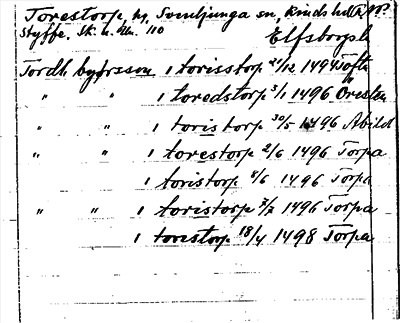 Torestorp, h, Svenljunga sn, Kinds hd
Styffe. Sk. u. Un. 110
Elfsborgsl
Tordh byfrsson i torisstorp 21/12 1494 Tofta
" " i toredstorp 3/1 1496 Öresten
" " i toristorp 30/5 1496 Abild
" " i torestorp 2/6 1496 Torpa
i toristorp 4/6 1496 Torpa
" " i toristorp 7/7 1496 Torpa
i torestorp 18/4 1498 Torpa